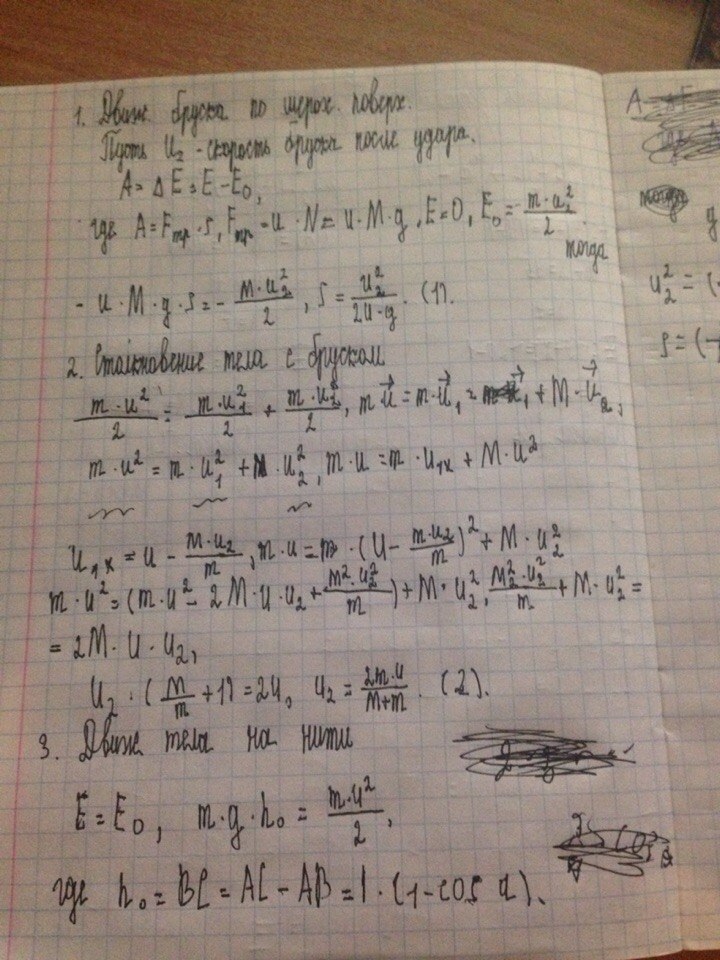 1. Движ. бруска по шерох. поверх.
Пусть U₂ - скорость бруска после удара.
A = ΔE = E - E₀,
где A = Fтр · S, Fтр = U · N = U · M · g, E = 0, E₀ = m·u₂²/2
тогда
- U · M · g · S = - M·U₂²/2, S = U₂²/2U·g. (1).
2. Столкновение тела с бруском
m·u²/2 = m·u₁²/2 + m·u₂²/2, m u⃗ = m·u⃗₁ = + M·u⃗₂,
m·u² = m·u₁² + M·u₂², m·u = m·u₁ₓ + M·U²
U₁ₓ = U - M·u₂/m, m·u = m·(U - m·u₂/m)² + M·u₂²
m·u² = (m·u² - 2M·U·u₂ + M²·u₂²/m) + M·u₂², M₂²·u₂²/m + M·u₂² =
= 2M·U·U₂,
U₂·(M/m + 1) = 2U, U₂ = 2m·u/M+m. (2).
3. Движ тела на нити
E = E₀, m·g·h₀ = m·U²/2,
где h₀ = BC = AC - AB = l·(1-cos α).
A
тогда
y
u₂² = (-
S = (-